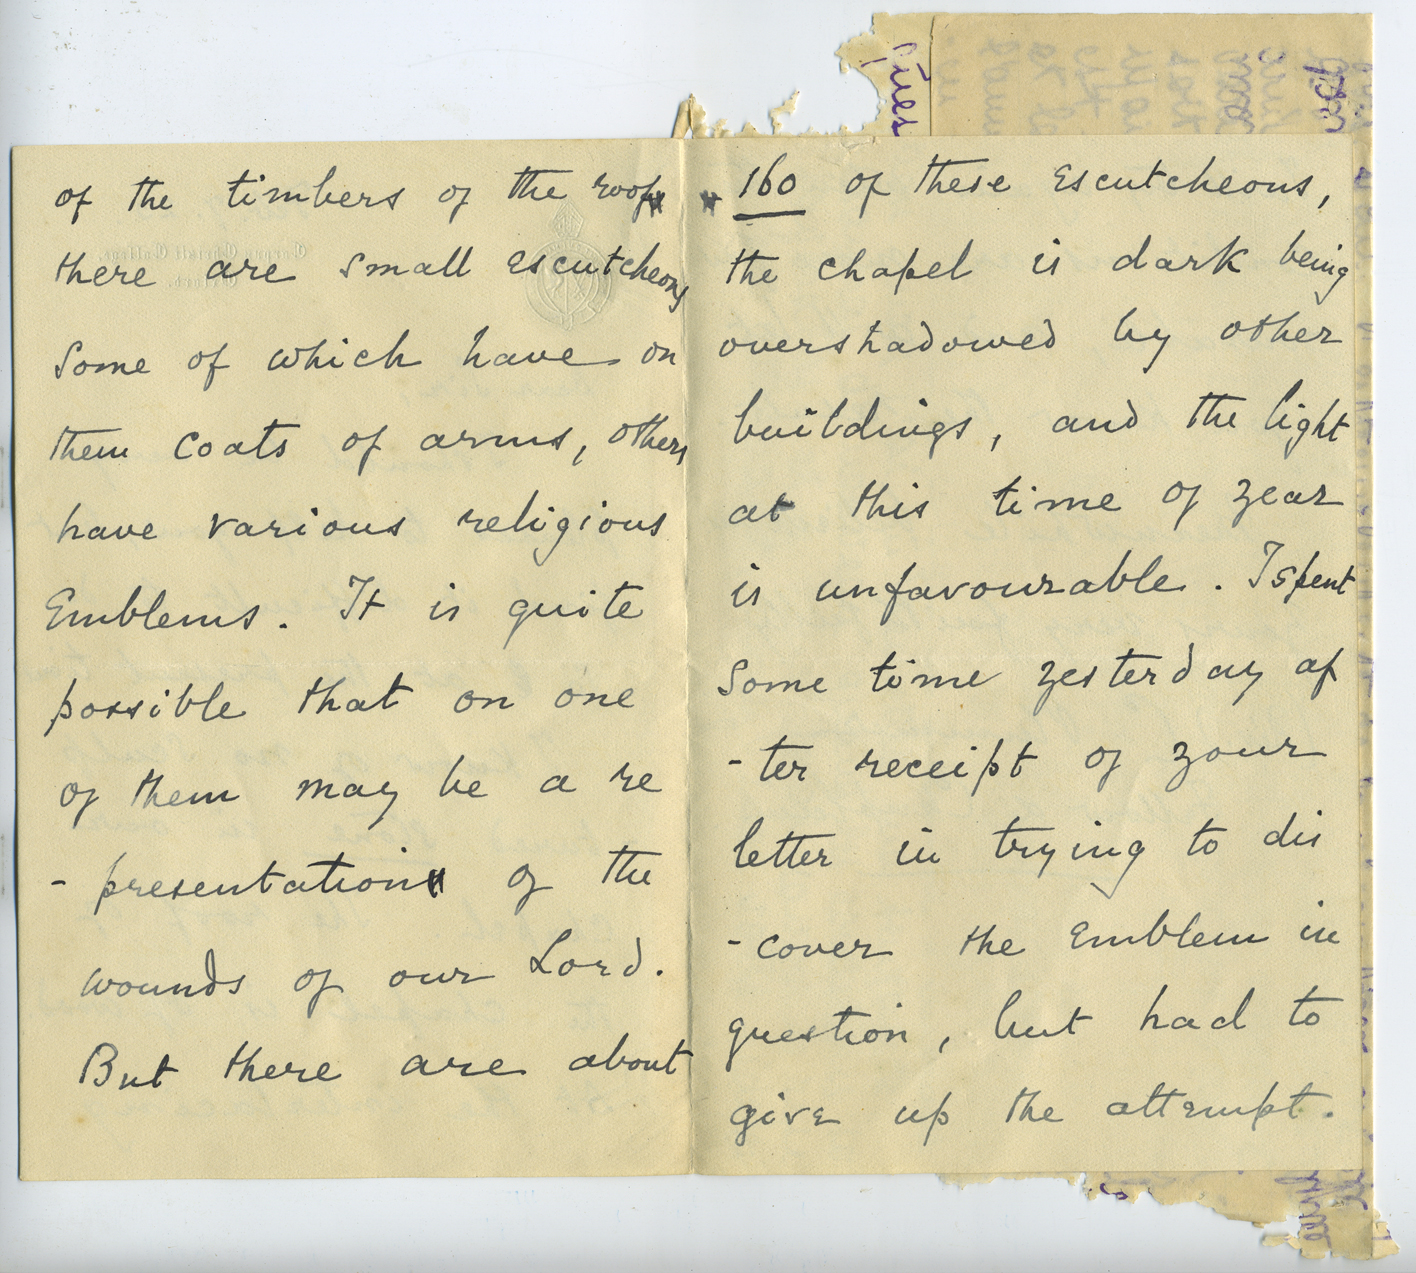 of the timbers of the roof
there are small escutcheons
Some of which have on
them coats of arms, others
have various religious
Emblems. It is quite
possible that on one
of them may be a re
- presentation of the
wounds of our Lord.
But there are about
160 of these Escutcheons,
the chapel is dark being
overshadowed by other
buildings, and the light
at this time of year
is unfavourable. I spent
Some time yesterday af
- ter receipt of your
letter in trying to dis
- cover the Emblem in
question, but had to
give up the attempt.